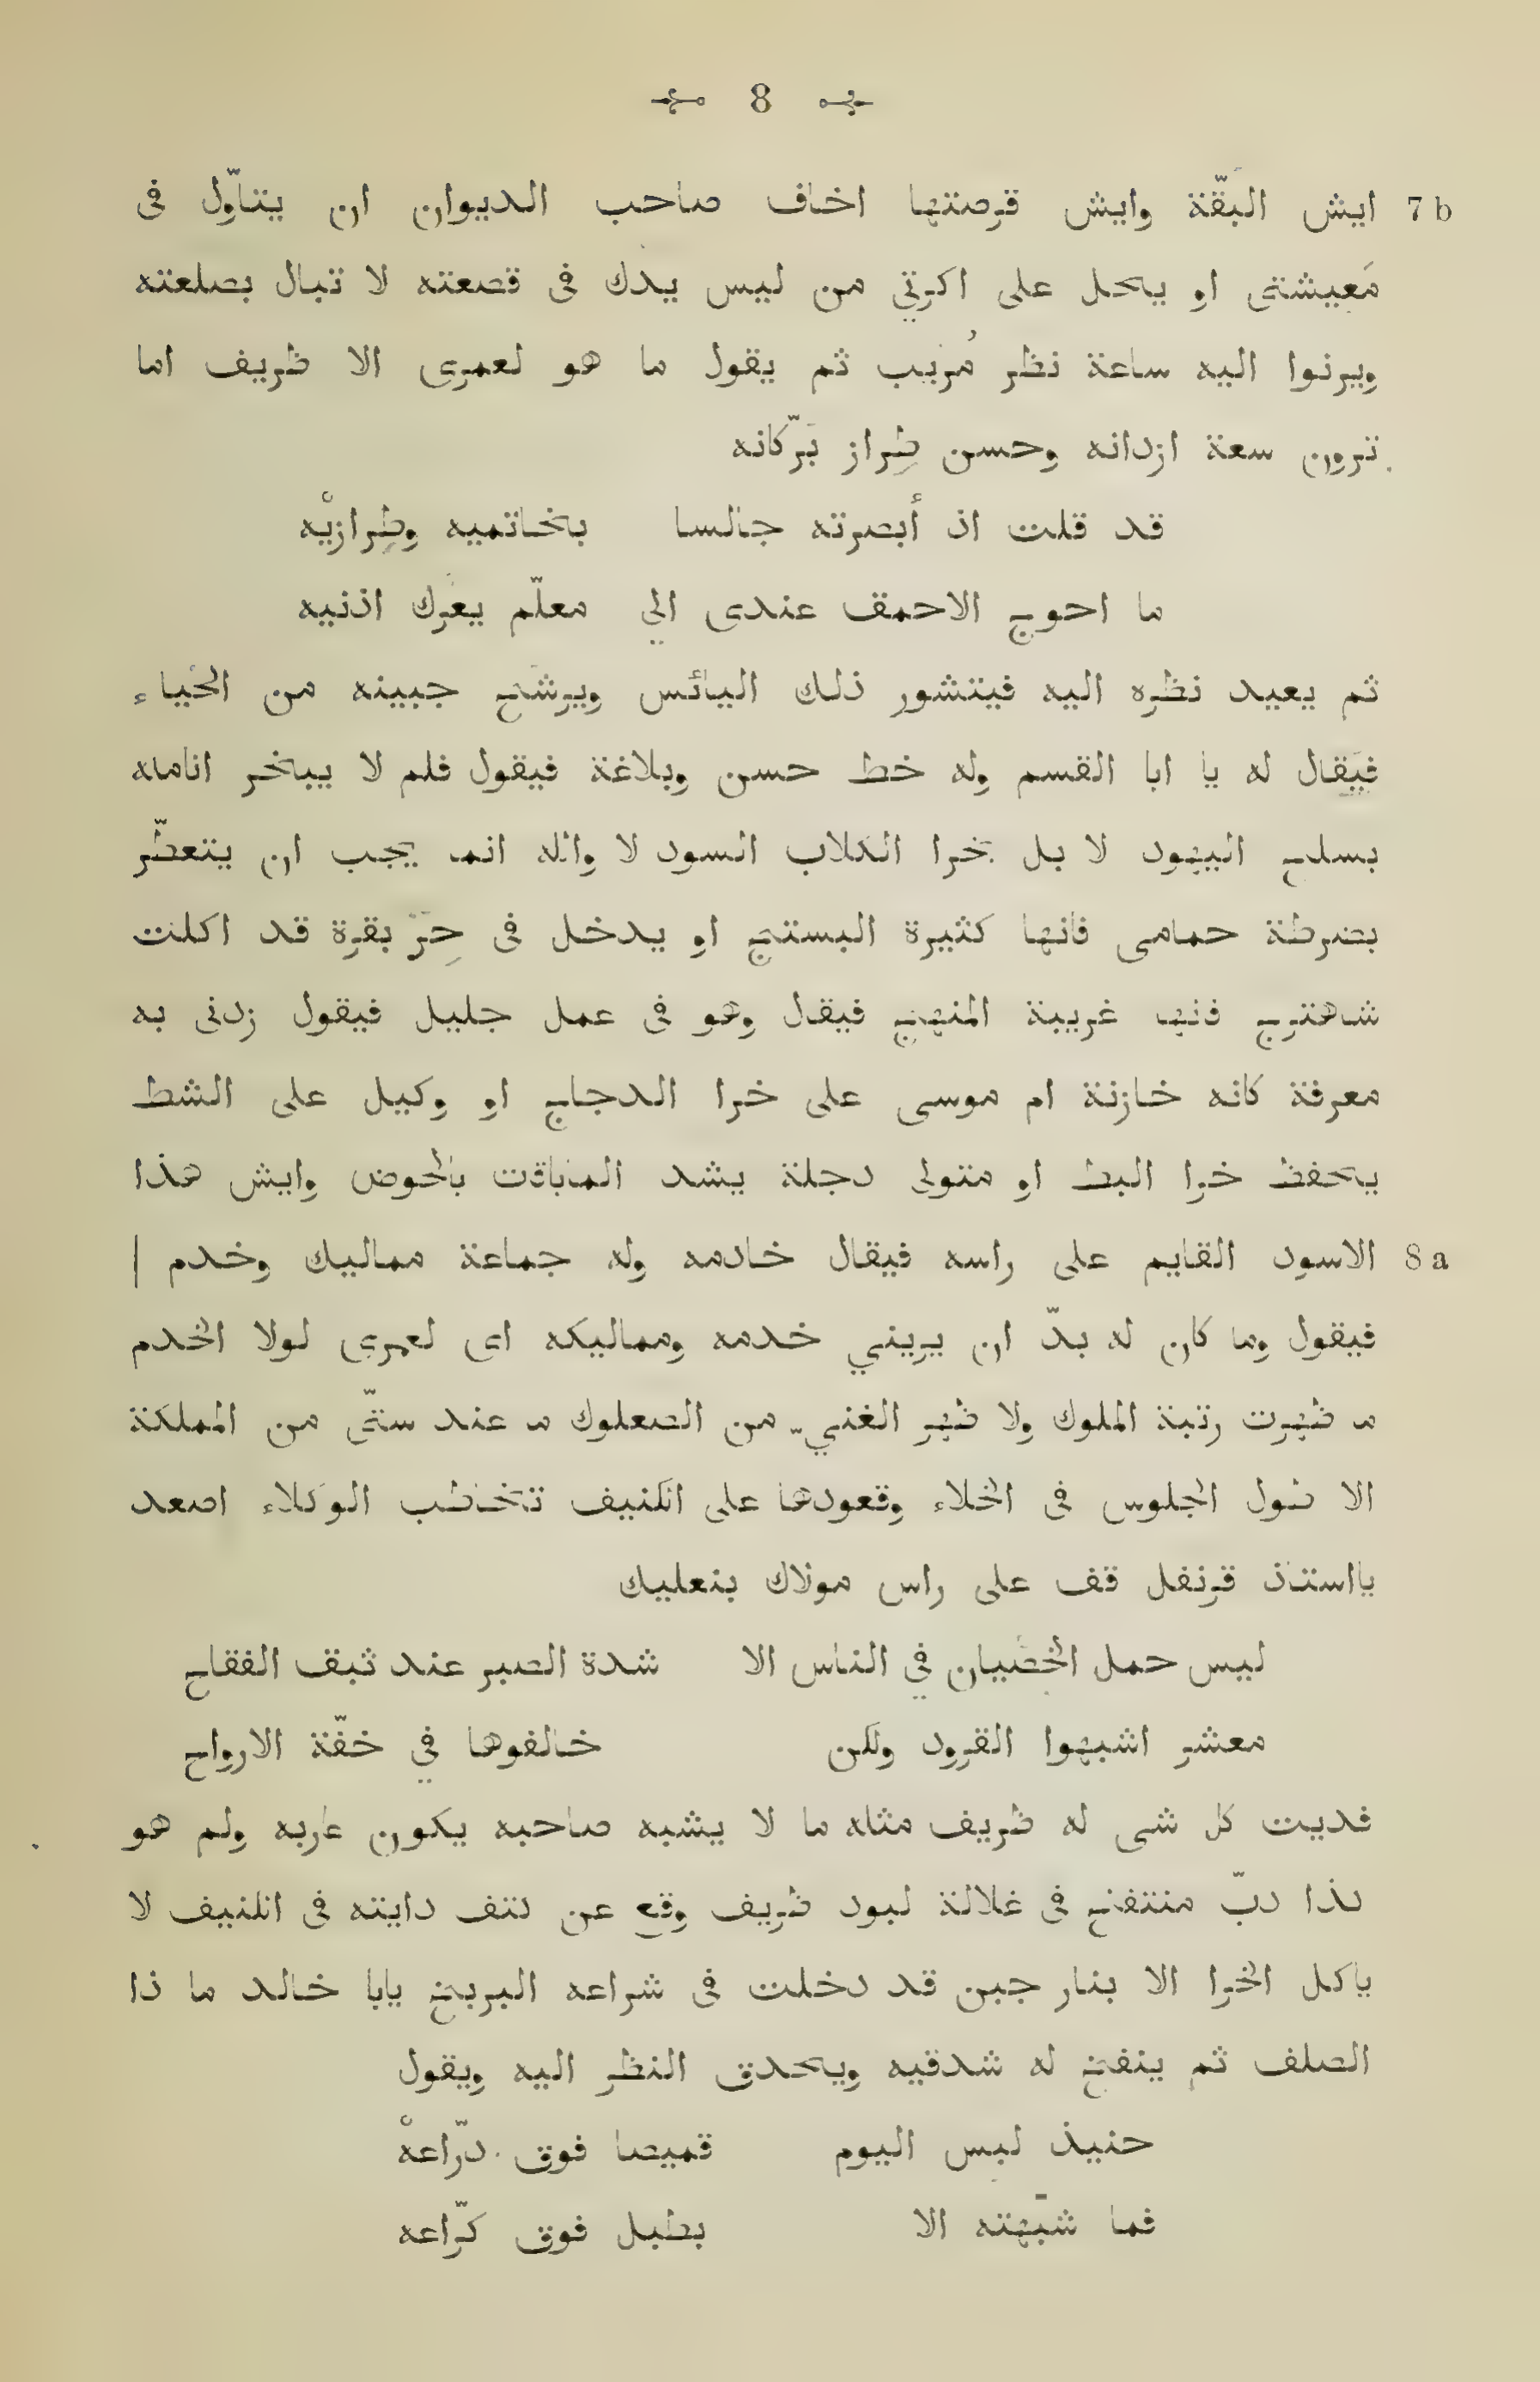 8
7 b ايش البقّة وايش قرصتها اخاف صاحب الديوان ان يتاوّل فى
مَعيشتى او يحل على اكرتي من ليس يدك فى قصعته لا تبال بصلعته
ويرنوا اليه ساعة نظر مُريب ثم يقول ما هو لعمرى الا ظريف اما
ترون سعة اردانه وحسن طِراز بَرّكانه
قد قلت اذ أبصرته جالسا بخاتميه وطِرازيْه
ما احوج الاحمق عندى الي معلّم يعرك اذنيه
ثم يعيد نظره اليه فيتشور ذلك البائس ويرشح جبينه من الحياء
فيَقال له يا ابا القسم وله خط حسن وبلاغة فيقول فلم لا يبخر انامله
بسلح اليهود لا بل بخرا الكلاب السود لا والله انما يجب ان يتعطّر
بضرطة حمامى فانها كثيرة البستج او يدخل فى حِرّ بقرة قد اكلت
شاهترج فانها غريبة المنهج فيقال وهو فى عمل جليل فيقول زدنى به
معرفة كانه خازنة ام موسى على خرا الدجاج او وكيل على الشط
يحفظ خرا البط او متولى دجلة يشد بالحوض وايش هذا
8 a الاسود القايم على راسه فيقال خادمه وله جماعة مماليك وخدم |
فيقول وما كان له بدّ ان يريني خدمه ومماليكه اى لعمرى لولا الخدم
ما ظهرت رتبة الملوك ولا ظهر الغنيّ من الصعلوك ما عند ستّى من المملكة
الا طول الجلوس فى الخلاء وقعودها على الكنيف تخاطب الوكلاء اصعد
يااستاذ قرنفل قف على راس مولاك بنعليك
ليس حمل الخصيان في الناس الا شدة الصبر عند ثبق الفقاح
معشر اشبهوا القرود ولكن خالفوها في خفّة الارواح
فديت كل شى له ظريف مثله ما لا يشبه صاحبه يكون عاربه ولم هو
لذا دبّ منتفخ فى غلالة لبود ظريف وقع عن كتف دايته فى الكنيف لا
ياكل الخرا الا بنار جبن قد دخلت فى شراعه البربخ يابا خالد ما ذا
الصلف ثم ينفخ له شدقيه ويحدق النظر اليه ويقول
حنيذ لبس اليوم قميصا فوق درّاعهْ
فما شبّهته الا بطبل فوق كرّاعه